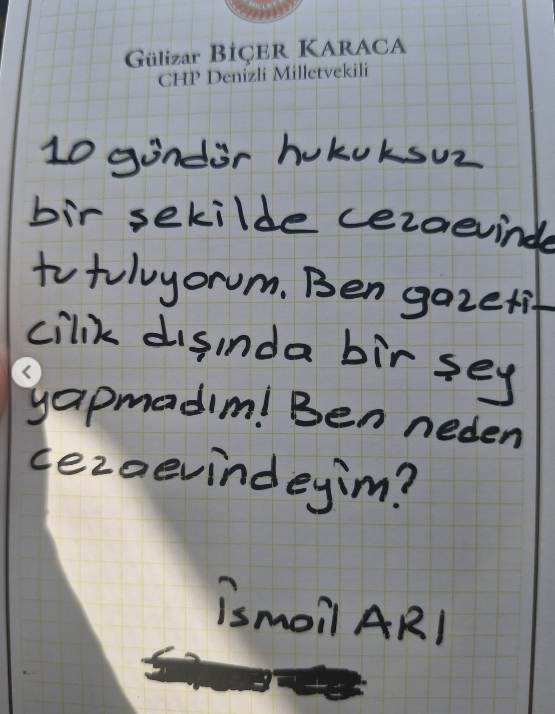 Gülizar BİÇER KARACA
CHP Denizli Milletvekili
10 gündür hukuksuz
bir şekilde cezaevinde
tutuluyorum. Ben gazeti-
cilik dışında bir şey
yapmadım! Ben neden
cezaevindeyim?
İsmail ARI